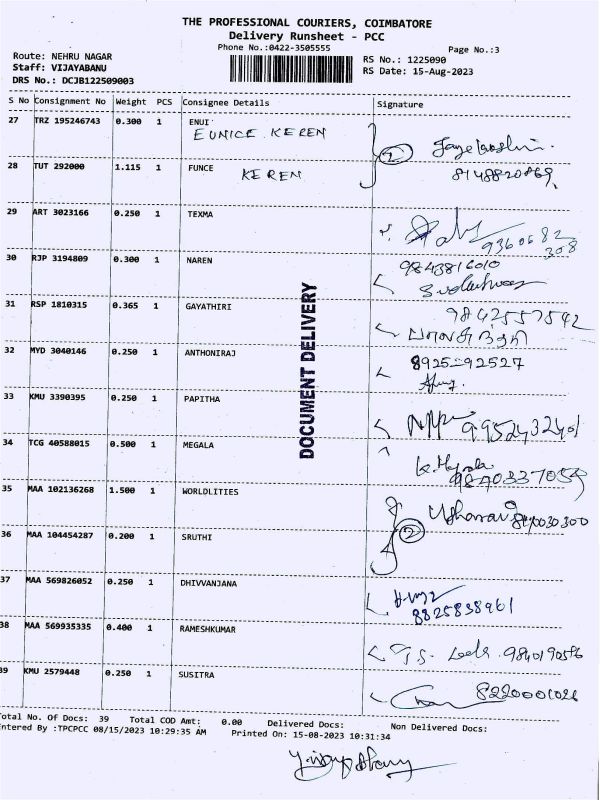 THE PROFESSIONAL COURIERS, COIMBATORE
Delivery Runsheet - PCC
Phone No.:0422-3505555
Page No.:3
Route: NEHRU NAGAR
Staff: VIJAYABANU
DRS No.: DCJB122509003
RS No.: 1225090
RS Date: 15-Aug-2023
S No Consignment No Weight PCS Consignee Details Signature
27 TRZ 195246743 0.300 1 ENUI
EUNICE KEREN
2
28 TUT 292000 1.115 1 FUNCE
KEREN
8148820869
29 ART 3023166 0.250 1 TEXMA
9360682
308
30 RJP 3194809 0.300 1 NAREN
9843816010
31 RSP 1810315 0.365 1 GAYATHIRI
9842557542
32 MYD 3040146 0.250 1 ANTHONIRAJ
892592527
33 KMU 3390395 0.250 1 PAPITHA
9952432401
34 TCG 40588015 0.500 1 MEGALA
9840337059
35 MAA 102136268 1.500 1 WORLDLITIES
2
36 MAA 104454287 0.200 1 SRUTHI
37 MAA 569826052 0.250 1 DHIVVANJANA
8825838961
38 MAA 569935335 0.400 1 RAMESHKUMAR
9840190586
39 KMU 2579448 0.250 1 SUSITRA
8220001026
DOCUMENT DELIVERY
Total No. Of Docs: 39 Total COD Amt: 0.00 Delivered Docs: Non Delivered Docs:
Entered By :TPCPCC 08/15/2023 10:29:35 AM Printed On: 15-08-2023 10:31:34